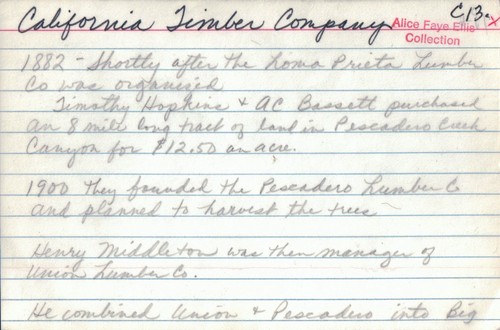 California Timber Company
C13a
X
Alice Faye Ellis
Collection
1882 - Shortly after the Loma Prieta Lumber
Co was organised
Timothy Hopkins & AC Bassett purchased
an 8 mile long tract of land in Pescadero Creek
Canyon for $12.50 an acre.
1900 They founded the Pescadero Lumber Co
and planned to harvest the trees
Henry Middleton was then manager of
Union Lumber Co.
He combined Union & Pescadero into Big